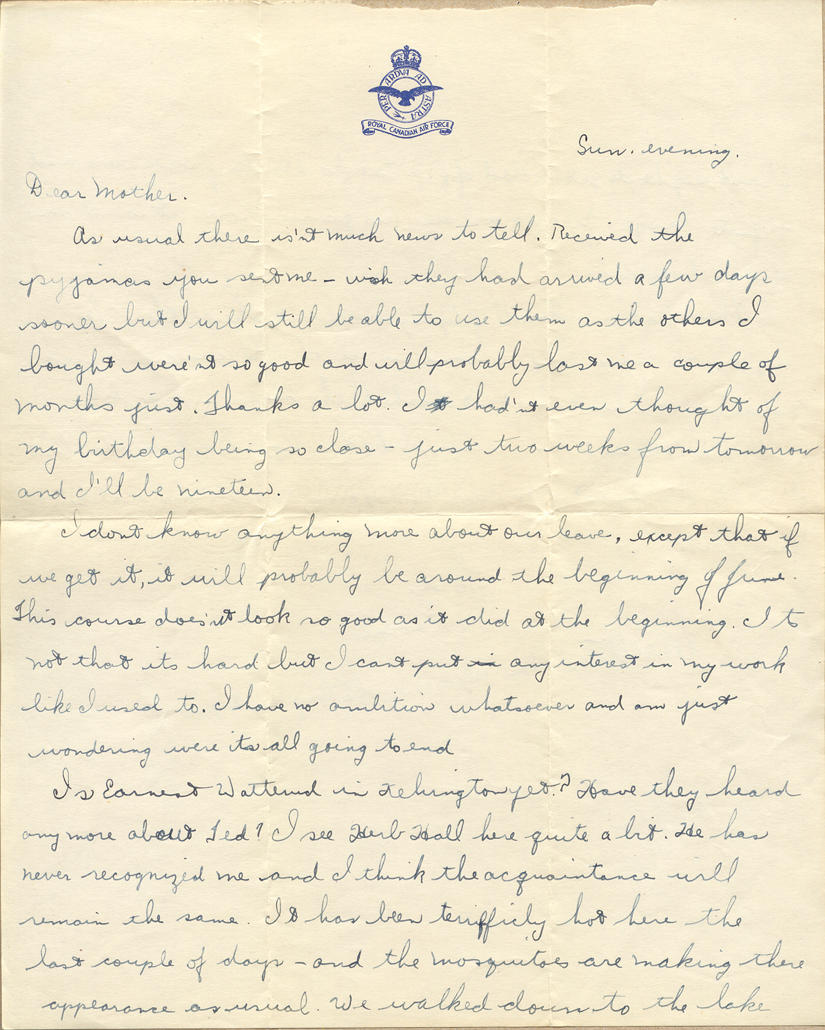 PER ARDUA AD ASTRA
ROYAL CANADIAN AIR FORCE
Sun. evening.
Dear Mother.
As usual there is'nt much news to tell. Received the
pyjamas you sent me – wish they had arrived a few days
sooner but I will still be able to use them as the others I
bought were'nt so good and will probably last me a couple of
months just. Thanks a lot. I had'nt even thought of
my birthday being so close – just two weeks from tomorrow
and I'll be nineteen.
I dont know anything more about our leave, except that if
we get it, it will probably be around the beginning of June.
This course does'nt look so good as it did at the beginning. Its
not that its hard but I cant put in any interest in my work
like I used to. I have no ambition whatsoever and am just
wondering were its all going to end
Is Earnest in yet? Have they heard
any more about Ted? I see Herb Hall here quite a bit. He has
never recognized me and I think the acquaintance will
remain the same. It has been terrificly hot here the
last couple of days – and the mosquitoes are making there
appearance as usual. We walked down to the lake